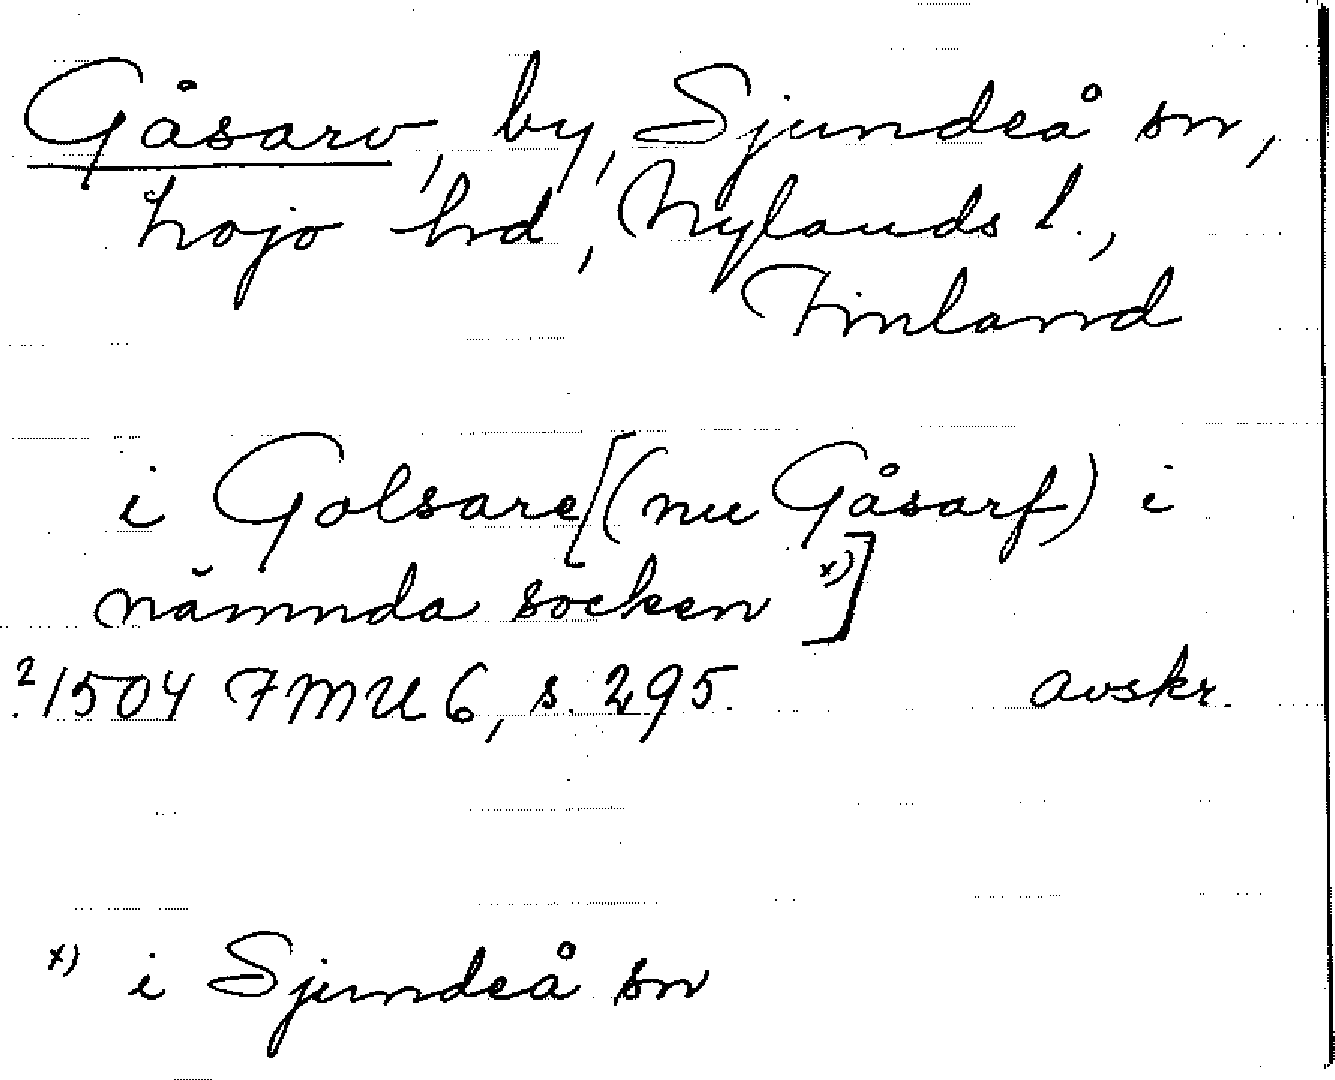 Gåsarv, by, Sjundeå sn,
Lojo hd, Nylands l.,
Finland
i Golsare [(nu Gåsarf) i
nämnda socken x)]
?1504 FMU 6, s. 295. avskr.
x) i Sjundeå sn